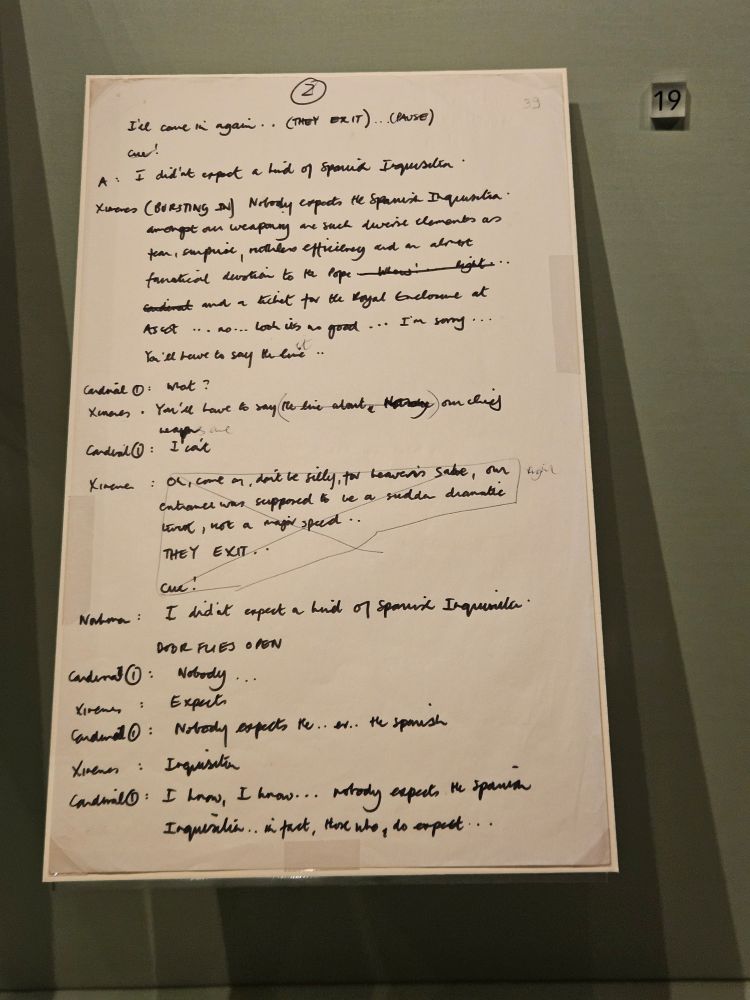 2
39
19
I'll come in again . . (THEY EXIT) ... (PAUSE)
Cue!
A : I didn't expect a kind of Spanish Inquisition .
Ximenes (BURSTING IN) Nobody expects the Spanish Inquisition .
amongst our weaponry are such diverse elements as
fear, surprise, ruthless efficiency and an almost
fanatical devotion to the Pope ...
cardinal and a ticket for the Royal Enclosure at
Ascot ... no ... look its no good ... I'm sorry ...
You'll have to say the line it ..
Cardinal 1 : What ?
Ximenes . You'll have to say (the line about, Nobody) our chief
weapons are
Cardinal 1 : I can't
Ximenes : Oh, come on, don't be silly, for heaven's sake, our Right
entrance was supposed to be a sudden dramatic
, not a major speech ..
THEY EXIT . .
Cue!
Northerner : I didn't expect a kind of Spanish Inquisition .
DOOR FLIES OPEN
Cardinal 1 : Nobody ...
Ximenes : Expects
Cardinal 1 : Nobody expects the .. er .. the Spanish
Ximenes : Inquisition
Cardinal 1 : I know, I know ... nobody expects the Spanish
Inquisition .. in fact, those who, do expect ...